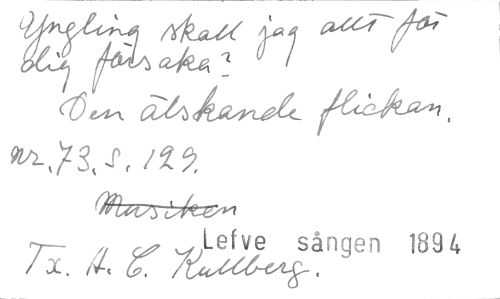 Yngling skall jag allt för
dig försaka?
Den älskande flickan.
nr. 73, s. 129.
Musiken
Lefve sången 1894
Tx. A. C. Kullberg.